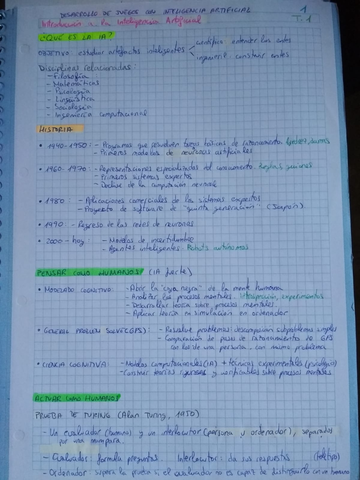 DESARROLLO DE JUEGOS CON INTELIGENCIA ARTIFICIAL
1
Introducción a la Inteligencia Artificial
T.1
¿QUÉ ES LA IA?
OBJETIVO: estudiar artefactos inteligentes
científico: entender los entes
ingeniería: construir entes
Disciplinas relacionadas:
- Filosofía
- Matemáticas
- Psicología
- Lingüística
- Sociología
- Ingeniería computacional
HISTORIA
• 1940-1950: - Programas que resuelven tareas de
- Primeros modelos de neuronas artificiales
• 1960-1970: - Representaciones especializadas del conocimiento. Reglas,
- Primeros sistemas expertos
- Declive de la computación neuronal
• 1980: - Aplicaciones comerciales de los sistemas expertos
- Proyecto de software de "quinta generación" (Japón)
• 1990: - Regreso de las redes de neuronas
• 2000-hoy: - Modelos de incertidumbre
- Agentes inteligentes. Robots autónomos
PENSAR COMO HUMANOS? (IA fuerte)
• MODELADO COGNITIVO: - Abrir la "caja negra" de la mente humana
- Analizar los procesos mentales. Introspección, experimentos
- Desarrollar teoría sobre procesos mentales
- Aplicar teoría en simulación en ordenador
• GENERAL PROBLEM SOLVER (GPS): - Resolver problemas descomponen subproblemas simples
- Comparación de pasos de razonamientos de GPS
con los de una persona, con mismo problema
• CIENCIA COGNITIVA: - Modelos computacionales (IA) + técnicas experimentales (psicología)
- Construir teorías y verificables sobre procesos mentales
ACTUAR COMO HUMANOS?
PRUEBA DE TURING (Alan Turing, 1950)
- Un evaluador (humano) y un interlocutor (persona u ordenador), separados
por una mampara
- Evaluador: formula preguntas. Interlocutor: da las respuestas
- Ordenador supera la prueba si el evaluador no es capaz de distinguirlo